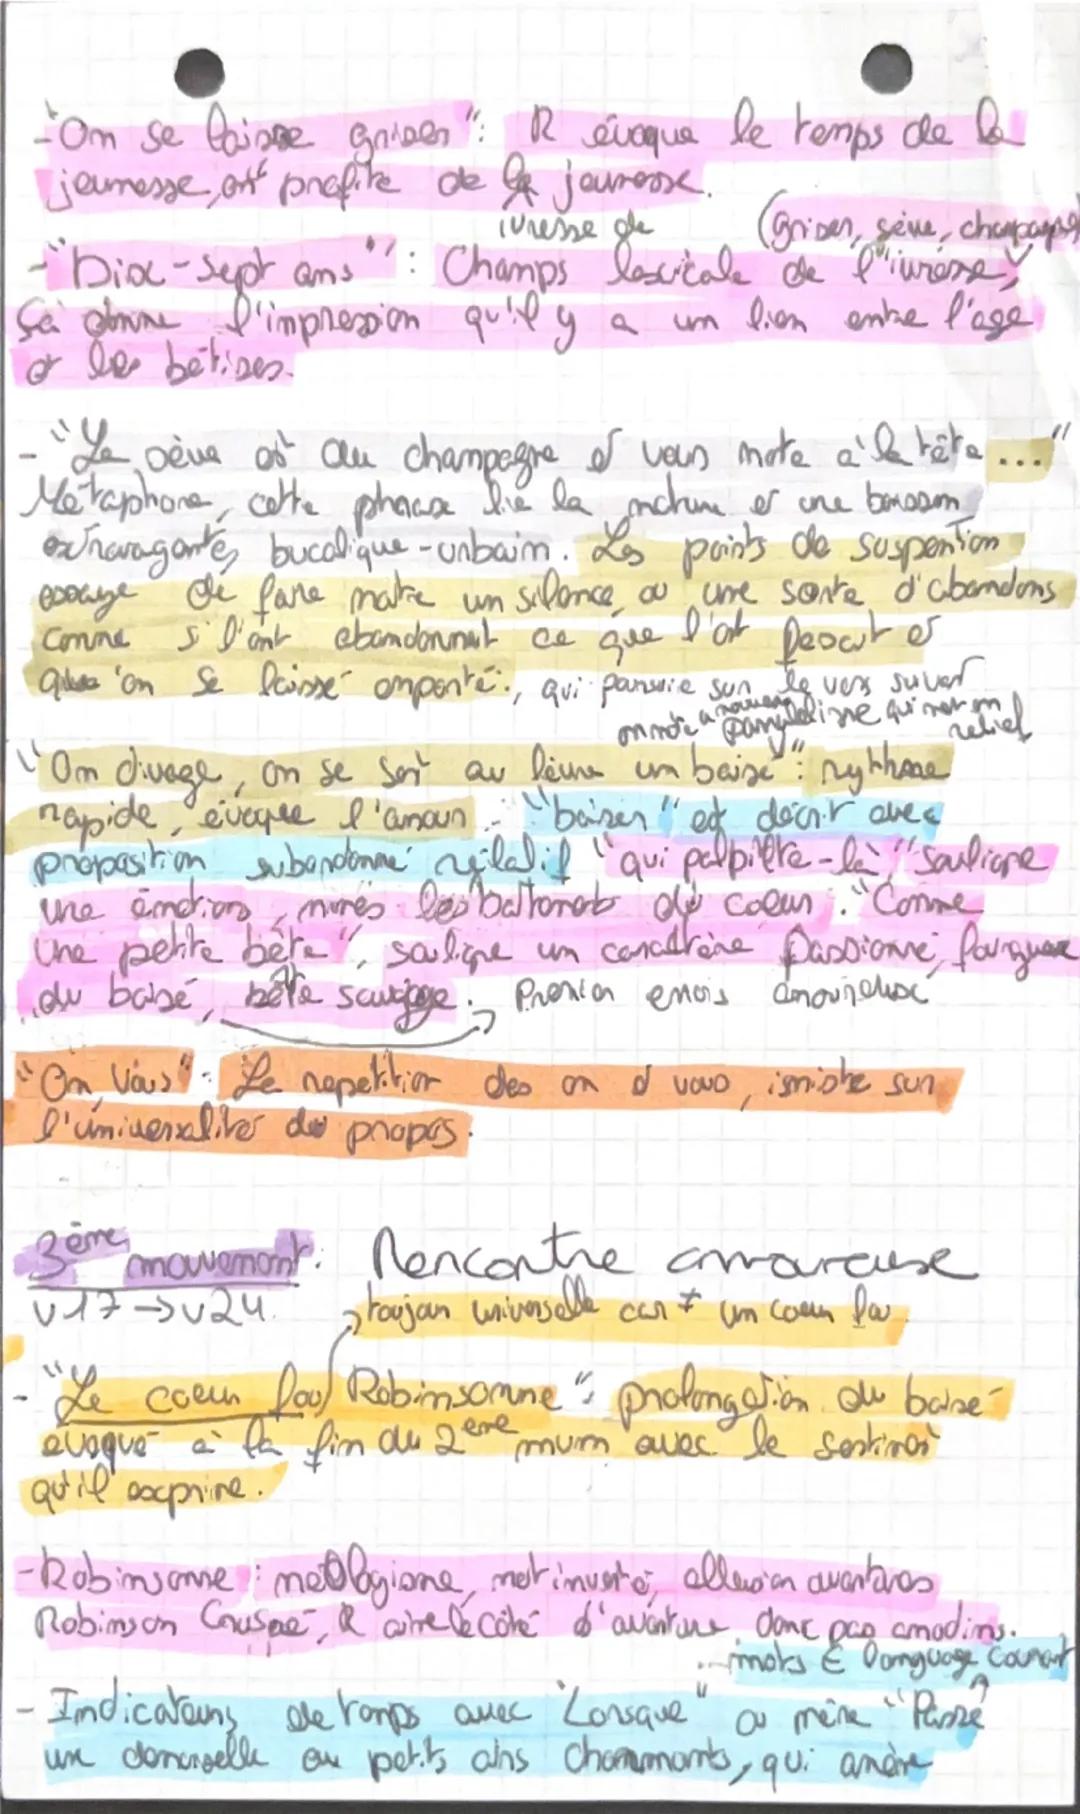 -"On se laisse griser": R évoque le temps de la
jeunesse, ont profite de la jeunesse.
ivresse de (griser, sève, champagne)
-"Dix-sept ans": Champs lexicale de l'ivresse,
Ça donne l'impression qu'il y a un lien entre l'age
et les bêtises.
-"La sève est du champagne et vous monte à la tête..."
Métaphore, cette phrase lie la nature et une boisson
extravagante, bucolique-urbain. Les points de suspention
essaye de faire naitre un silence, ou une sorte d'abandons
comme s'l'ont abandonnait ce que l'ont pescut et
que'on se laissé emporté., qui parsuie sur le vers suivant
on note a nouveau parallélisme qui met en
relief
"On divage, on se sent au lèvre un baisé": rythme
rapide, évoque l'amour. "baiser" est décrit avec
proposition subordonné rélatif "qui palpiltre-là", souligne
une émotions, mimés les battements du coeur. "Comme
Une petite bête", souligne un caractère passionné, fougueux
du baisé, bête sauvage. Premier émois amoureux
"On, Vous": Le repetition des on et vous, insiste sur
l'universalité du propos.
3ème mouvement: Rencontre amoureuse
v17→v24.
toujour universelle car ≠ un coeur fou
-"Le coeur fou Robinsonne": prolongation du baisé
evoqué à la fin du 2ème mvm avec le sentiment
qu'il exprime.
-Robinsonne: néologisme, mot inventé, allusion aventures
Robinson Crusoé, R aime le côté d'aventure donc pas anodins.
mots E language courant
- Indicateurs de temps avec "Lorsque" ou même "Passe
une demoiselle au petits airs charmants, qui amène